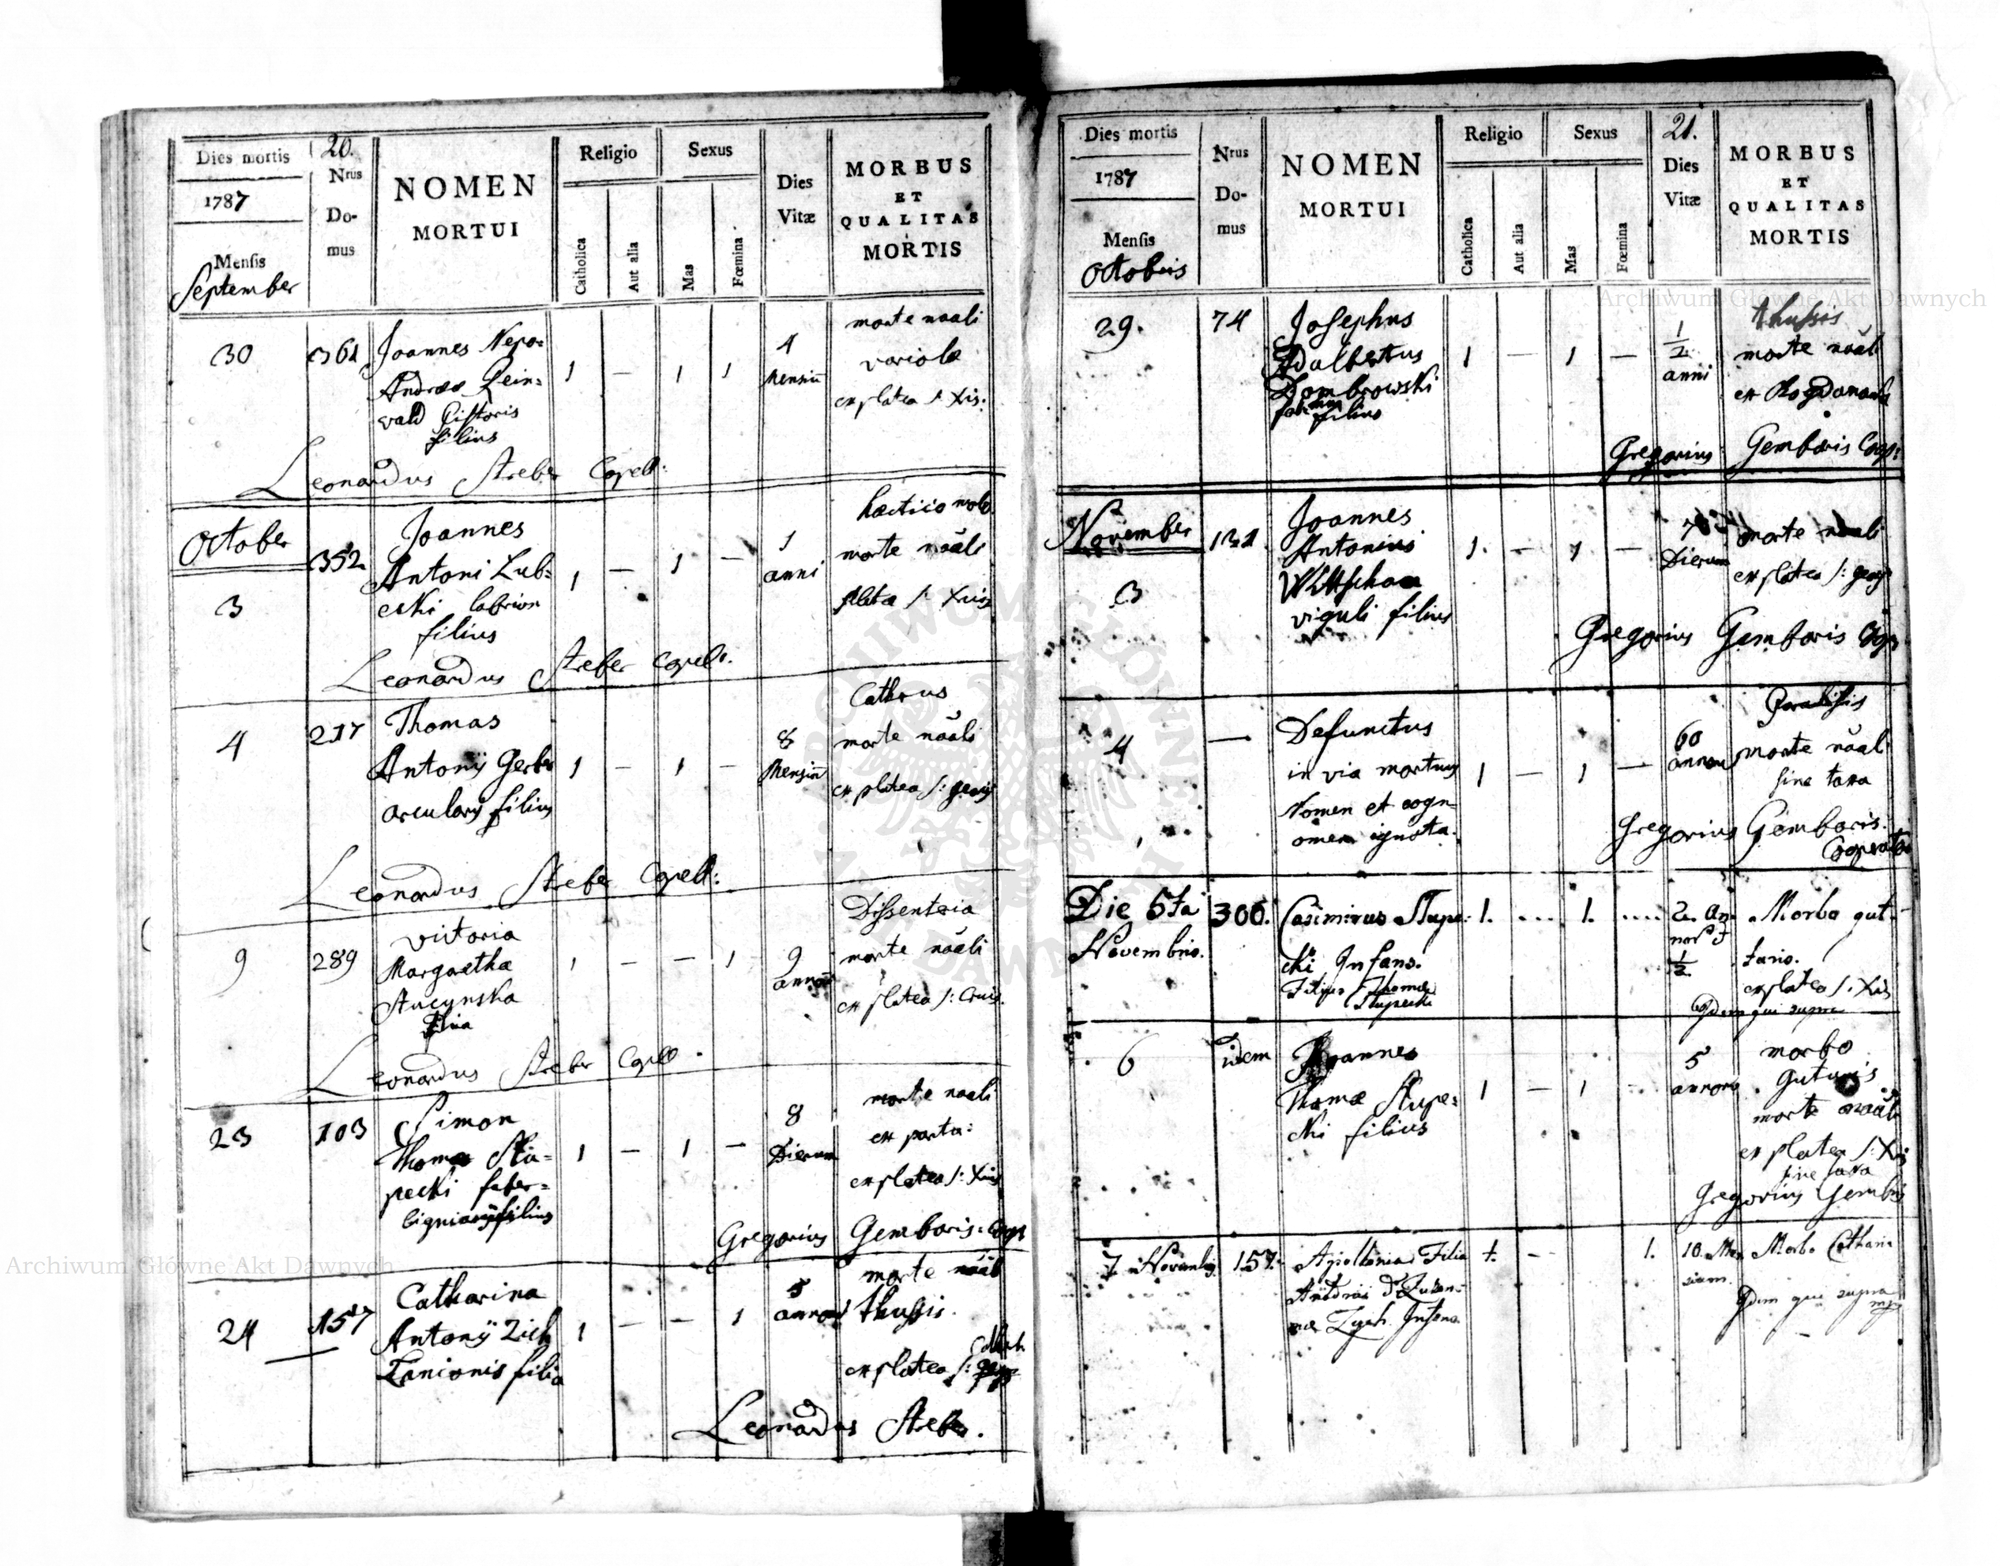 Dies mortis
1787
Mensis
September
20.
Nrus
Do-
mus
NOMEN
MORTUI
Religio
Catholica
Aut alia
Sexus
Mas
Fœmina
Dies
Vitæ
MORBUS
ET
QUALITAS
MORTIS
30
361
Joannes Nepo:
Andreæ Lein=
vald Pistoris
filius
1 — 1 1
4
Mensiū
morte nāali
variolæ
ex platea S: Xis.
Leonardus Streber Capell:
October
3
352
Joannes
Antoni Lub=
ecki
filius
1 — 1 —
1
anni
morte nāali
platea S:
Leonardus Streber Capell.
4
217
Thomas
Antonij Gerber
arcularij filius
1 — 1 —
8
Mensiū
Cathrus
morte nāali
ex platea S:
Leonardus Streber Capell:
9
289
Victoria
Margaretha
filia
1 — — 1
9
annor
Dissenteria
morte nāali
ex platea S: Crucis.
Leonardus Streber Capell.
23
103
Simon
Thomæ Stu=
pecki faber=
lignarij filius
1 — 1 —
8
Dierum
morte naali
ex platea S: Xcis
Gregorius Gembaris: Coop
24
157
Catharina
Antonij Zich
Lanionis filia
1 — — 1
5
annor
morte nāali
thussis.
ex platea S:
Leonardus Streber.
Dies mortis
1787
Mensis
Octobris
Nrus
Do-
mus
NOMEN
MORTUI
Religio
Catholica
Aut alia
Sexus
Mas
Fœmina
21.
Dies
Vitæ
MORBUS
ET
QUALITAS
MORTIS
29.
74
Josephus
Adalbertus
Dombrowski
filius
1 — 1 —
1/2
anni
thussis
morte nāali
ex
Gregorius Gembaris Coop:
November
3
131
Joannes
Antonius
viguli filius
1. — 1 —
Dierum
morte naali
ex platea S:
Gregorius Gembaris Coop
4
—
Defunctus
in via mortuus
Nomen et cogn=
omen ignota.
1 — 1 —
60
annor
morte nāali
sine taxa
Gregorius Gembaris.
Cooperator
Die 5ta
Novembris.
300.
Casimirus Stupe:
cki Infans.
Filius Thomæ
Stupecki
1. .... 1. ....
2. An-
nor
1/2
Morbo gut-
turis.
ex platea S: Xcis
Idem qui supra
6
idem
Joannes
Thomæ Stupe:
cki filius
1 — 1 —
5
annor
morbo
Guturis
morte nāali
ex platea S: Xcis
sine taxa
Gregorius Gembris
7 Novembr.
157.
Apollonia Filia
Infans.
1. -- 1.
10. Men
sium.
Morbo Catharis
Idem qui supra
mp
Archiwum Główne Akt Dawnych
Archiwum Główne Akt Dawnych
ARCHIWUM GŁÓWNE AKT DAWNYCH